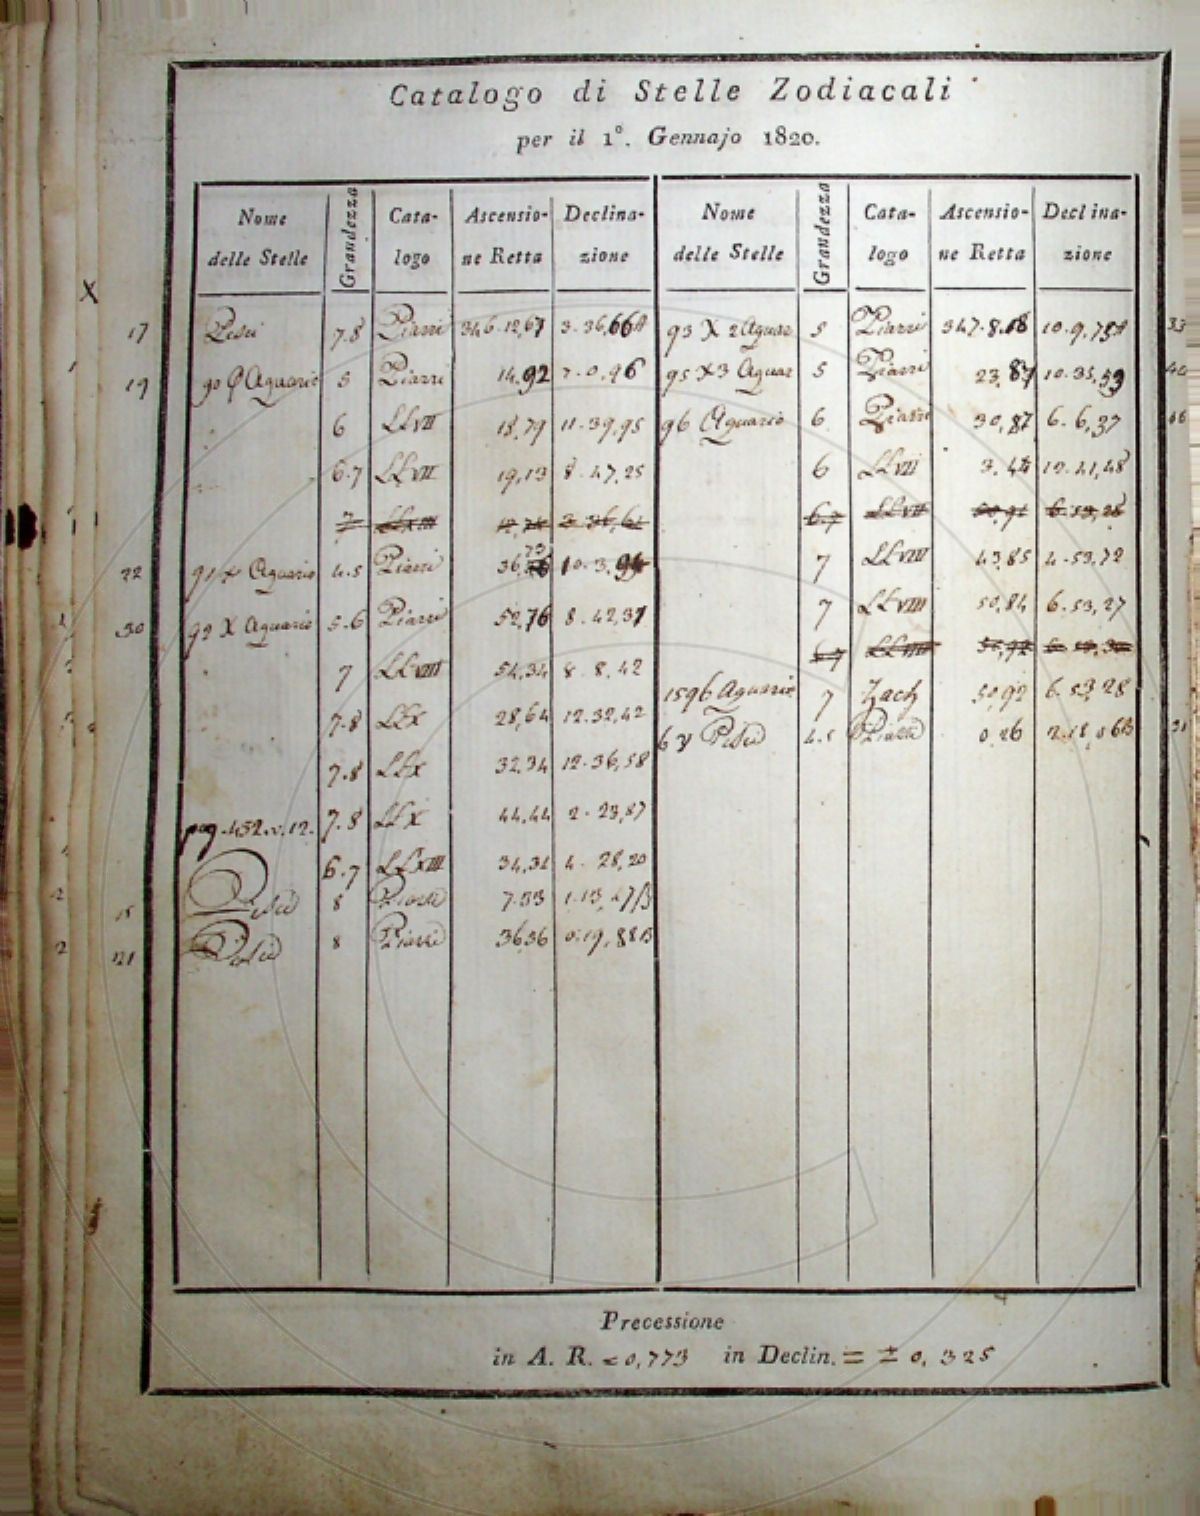 Catalogo di Stelle Zodiacali
per il 1°. Gennajo 1820.
Nome delle Stelle Grandezza Cata-logo Ascensio-ne Retta Declina-zione
X
17 Pesci 7.8 Piazzi 346.12,67 3.36,66A
19 90 φ Aquario 5 Piazzi 14,92 7.0,96
6 LLVII 18,79 11.39,95
6.7 LLVII 19,13 8.47,25
7 LLXIII
22 91 Aquario 4.5 Piazzi 36,73 10.3,94
30 92 χ Aquario 5.6 Piazzi 52,76 8.42,31
7 LLVIII 54,34 8.8,42
7.8 LLX 28,64 12.32,42
7.8 LLX 32,34 12.36,58
pag.452.v.12. 7.8 LLX 44,44 2.23,87
6.7 LLXIII 34,31 4.28,20
15 Pesci 8 Piazzi 7.33 1.13,47B
121 Pesci 8 Piazzi 36,36 0.19,88B
Nome delle Stelle Grandezza Cata-logo Ascensio-ne Retta Declina-zione
93 X 2 Aquar 5 Piazzi 347.8,18 10.9,75A 33
95 X 3 Aquar 5 Piazzi 23,87 10.35,59 40
96 Aquario 6 Piazzi 30,87 6.6,37 66
6 LLVII 3,44 12.41,48
6.7 LLVII
7 LLVIII 43,85 4.53,72
7 LLVIII 50,84 6.53,27
6.7
1596 Aquario 7 Zach 50,92 6.53,28
6 γ Pesci 4.5 Piazzi 0,26 2.18,06B 21
Precessione
in A. R. = 0,773 in Declin. = ± 0,325